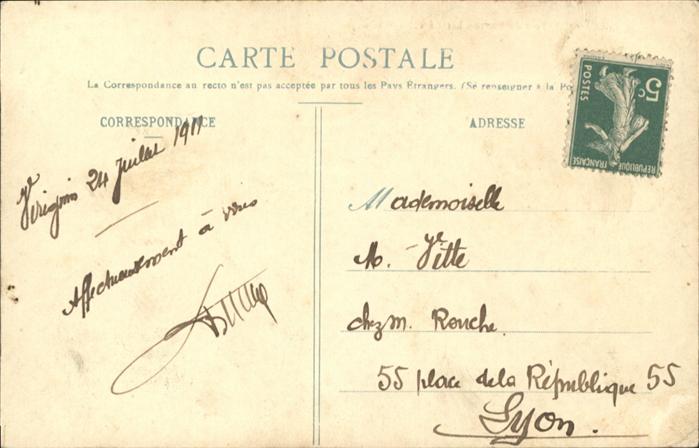 CARTE POSTALE
La Correspondance au recto n'est pas acceptée par tous les Pays Étrangers. (Se renseigner à la Po
CORRESPONDANCE
24 juillet 1911
Affectueusement à vous
ADRESSE
Mademoiselle
M. Vitte
chez m. Rouche.
55 place de la République 55
Lyon.
POSTES
5c
RÉPUBLIQUE FRANÇAISE